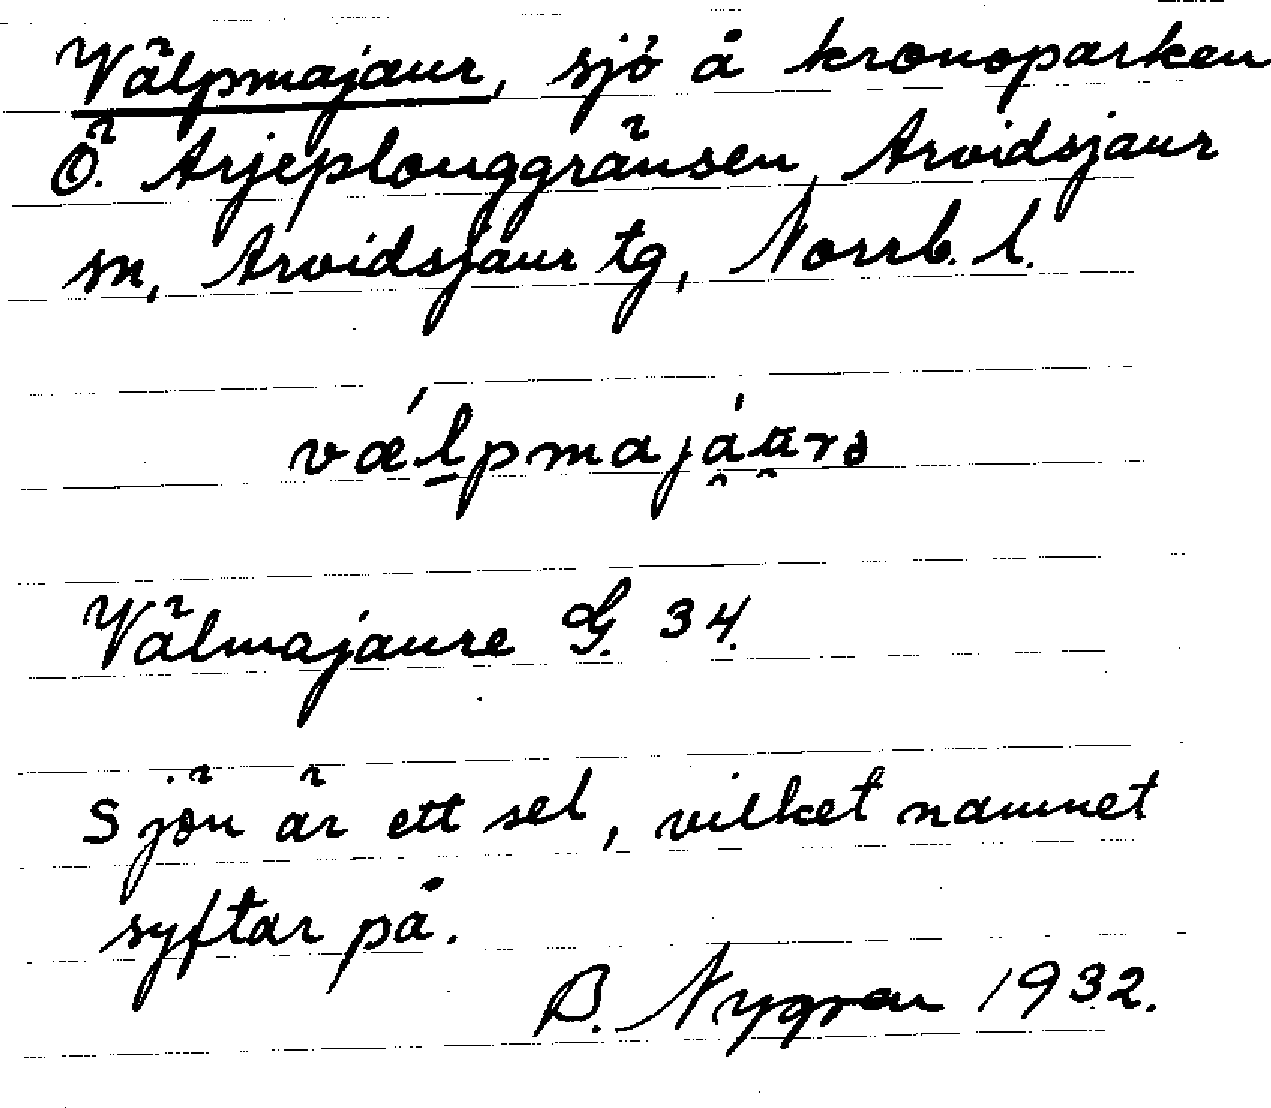 Välpmajaur, sjö å kronoparken
Ö. Arjeplouggränsen, Arvidsjaur
sn, Arvidsjaur tg, Norrb. l.
vǽl̠pmajá̯ṳrə
Välmajaure G. 34.
Sjön är ett sel, vilket namnet
syftar på.
B. Nygren 1932.